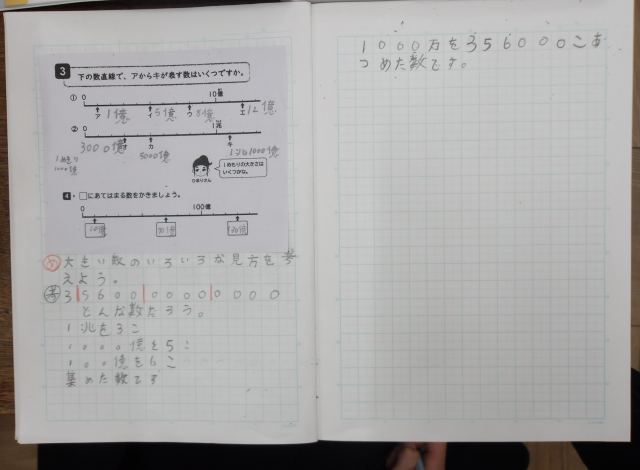 3 下の数直線で、アからキが表す数はいくつですか。
① 0 10億
ア 1億 イ 5億 ウ 8億 エ 12億
② 0 1兆
3000億 オ カ キ
5000億 1兆1000億
1めもり
1000億
1めもりの大きさは
いくつかな。
ひまりさん
4 □にあてはまる数をかきましょう。
0 100億
10億
130億
大きい数のいろいろな見方を考
えよう。
考 3 5600 0000 0000
どんな数だろう。
1兆を3こ
1000億を5こ
100億を6こ
集めた数です
1000万を356000こあ
つめた数です。